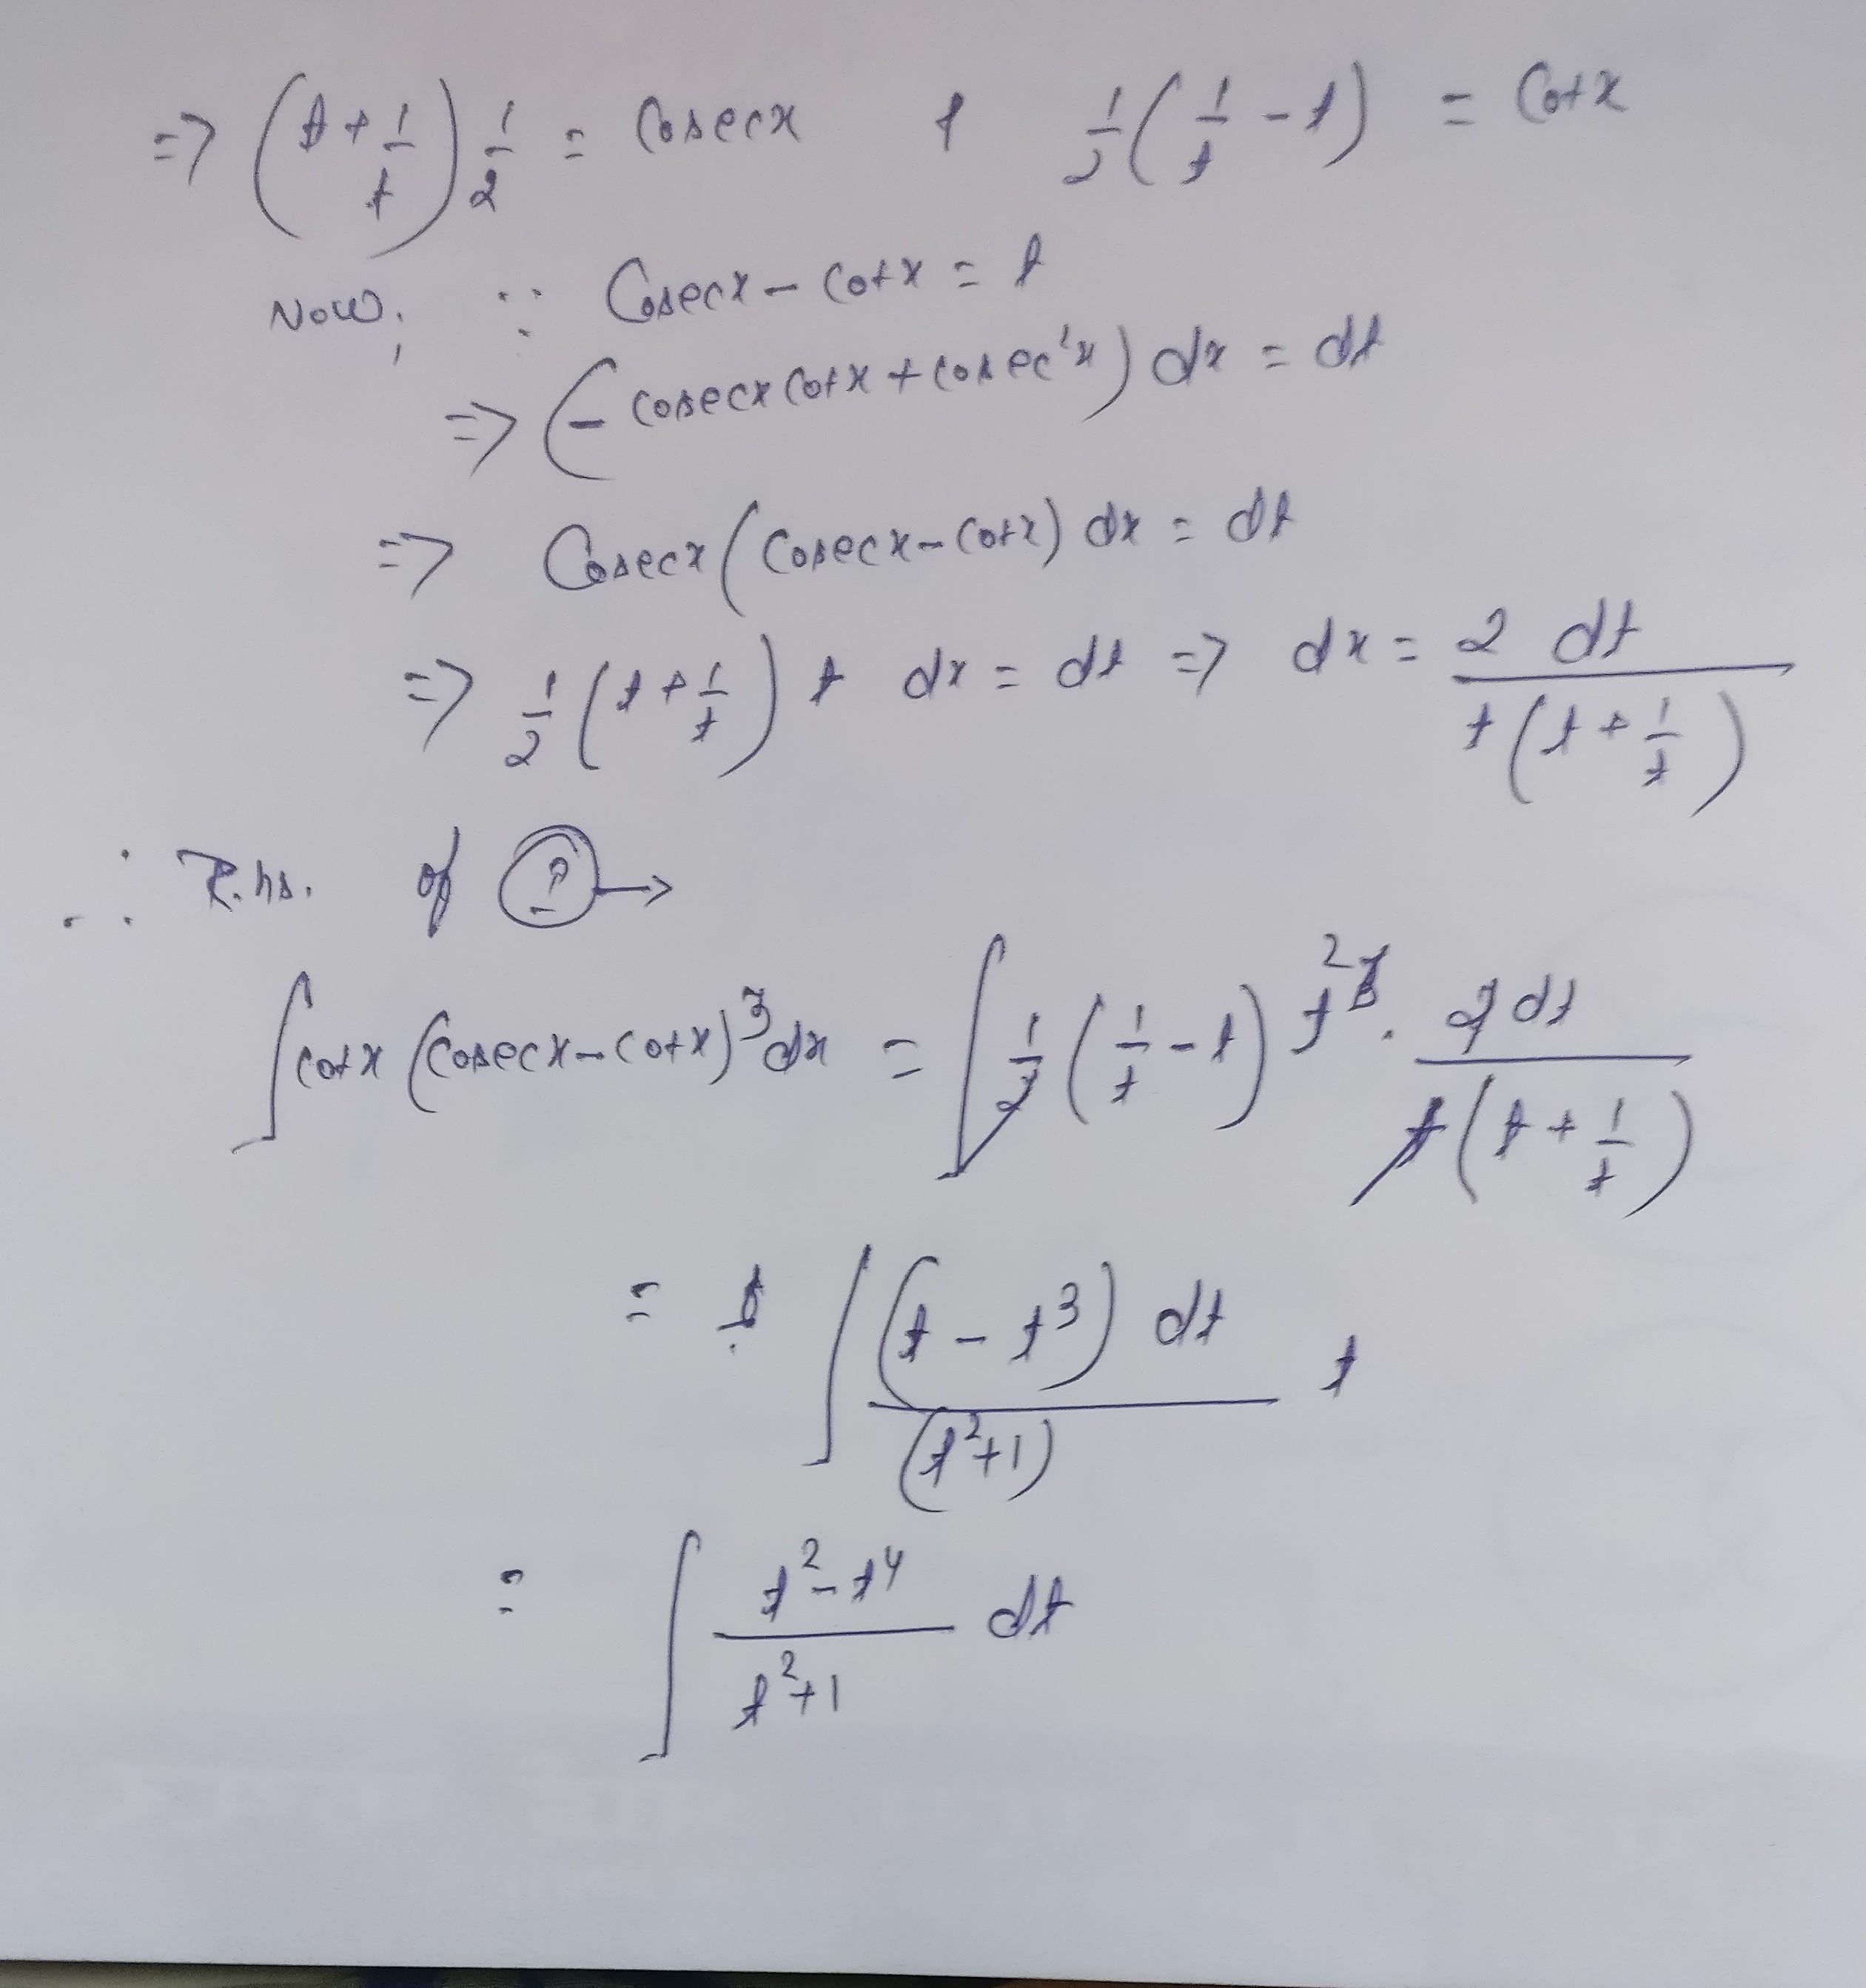 => (t + 1/t) 1/2 = Cosecx & 1/2 (1/t - t) = Cotx
Now, ∵ Cosecx - Cotx = t
=> (- cosecx cotx + cosec²x) dx = dt
=> Cosecx (Cosecx - Cotx) dx = dt
=> 1/2 (t + 1/t) t dx = dt => dx = 2 dt / t(t + 1/t)
∴ R.hs. of →
∫ cotx (Cosecx - cotx)³ dx = ∫ 1/2 (1/t - t) t² . 2 dt / t(t + 1/t)
= ∫ (t - t³) dt / (t²+1) t
= ∫ t² - t⁴ / t²+1 dt